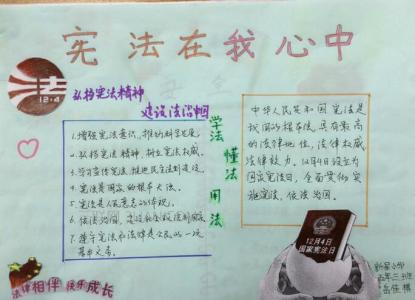 宪法在我心中
法
12.4
弘扬宪法精神
建设法治中国
1.增强宪法意识，推动科学发展。
2.弘扬宪法精神，树立宪法权威。
3.学习宣传宪法，推进民主法制建设。
4.宪法是国家的根本大法。
5.宪法是人民意志的体现。
6.依法治国，建设社会主义法制国家
7.遵守宪法和法律是公民的一项
基本义务。
学法
懂法
用法
中华人民共和国宪法是
我国的根本法，具有最高
的法律地位，法律权威，
法律效力。12月4日设立为
国家宪法日，全面贯彻实
施宪法，依法治国。
12月4日
国家宪法日
法律相伴 快乐成长
五年三班